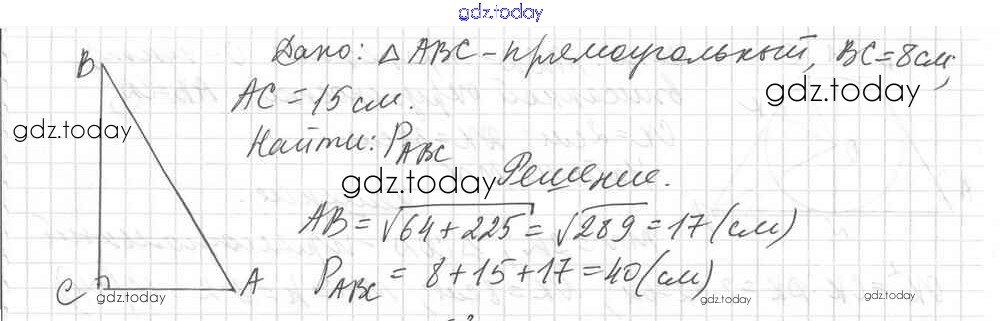 gdz.today
Дано: △ABC - прямоугольный, BC = 8 см,
AC = 15 см.
gdz.today
gdz.today
Найти: P_ABC
gdz.today
Решение.
AB = √64 + 225 = √289 = 17 (см)
P_ABC = 8 + 15 + 17 = 40 (см)
B
C
A
gdz.today
gdz.today
gdz.today